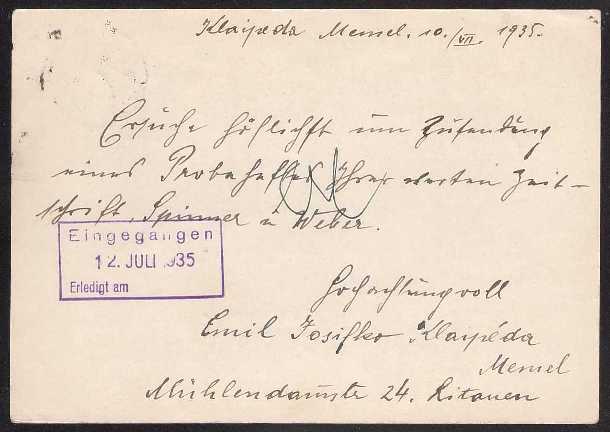 Klaipéda Memel. 10./VII. 1935.
Ersuche höflichst um Zusendung
eines Probeheftes Ihrer werten Zeit-
schrift, Spinner u Weber.
Eingegangen
12. JULI 1935
Erledigt am
Hochachtungvoll
Emil Josifko Klaipéda
Memel
Mühlendammstr 24. Litauen